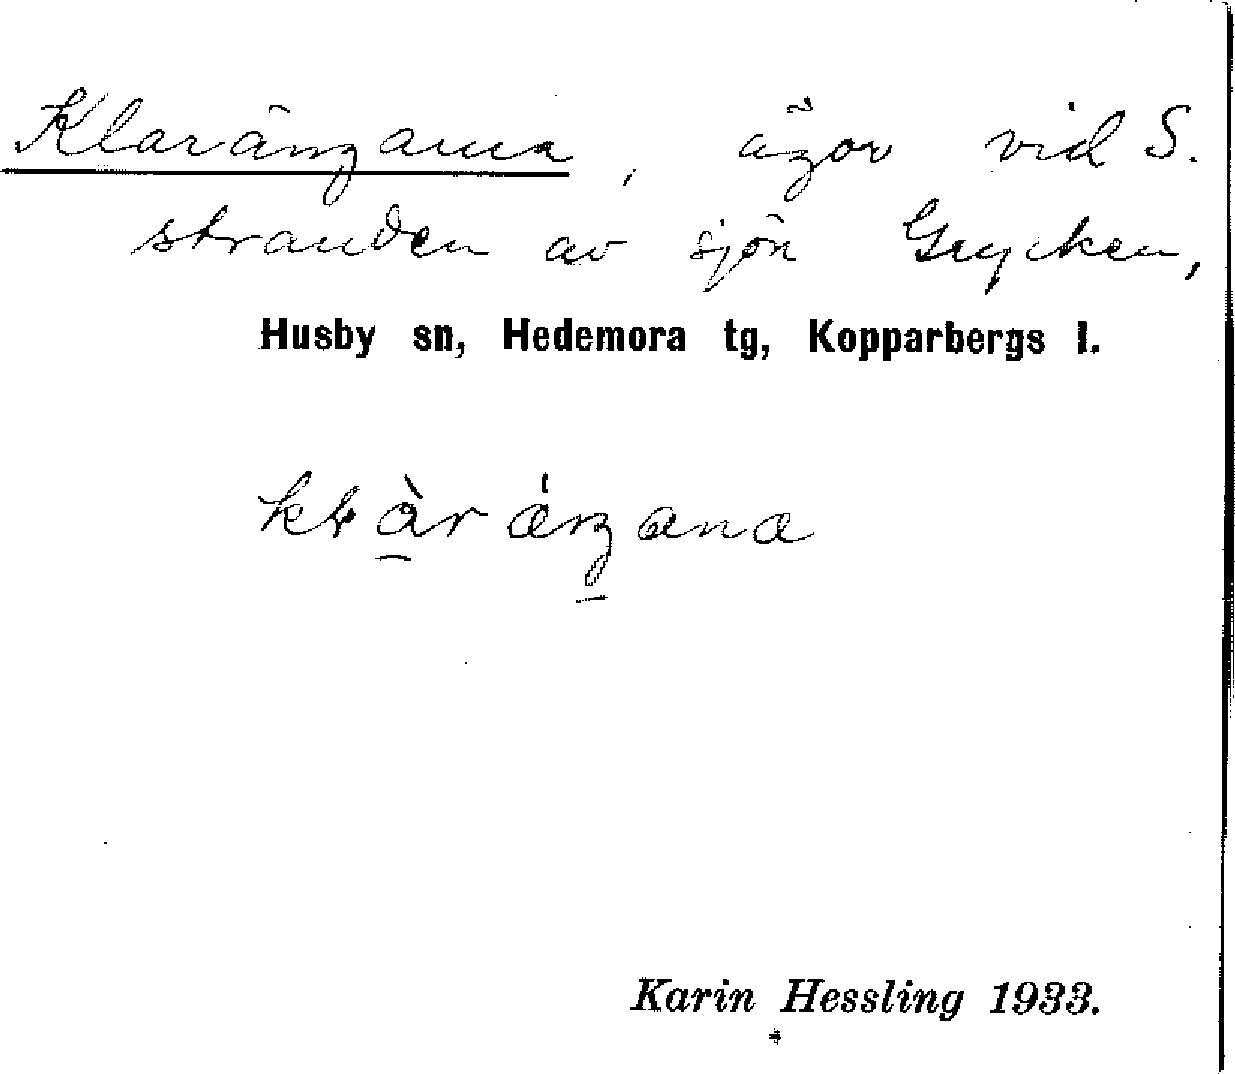 Klarängarna, ägor vid S.
stranden av sjön Grycken,
Husby sn, Hedemora tg, Kopparbergs l.
Karin Hessling 1933.